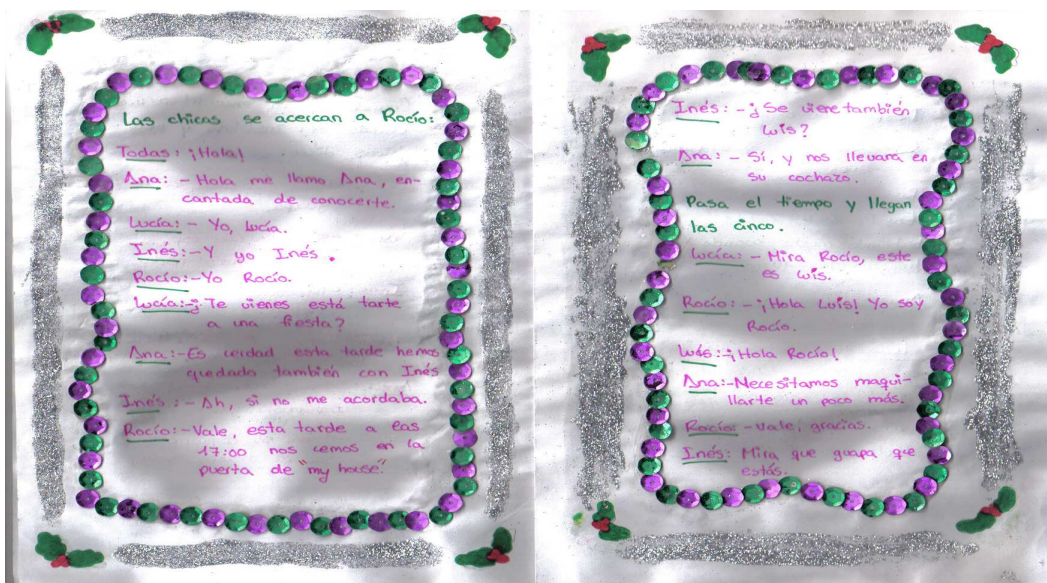 Las chicas se acercan a Rocío:
Todas: ¡Hola!
Ana: - Hola me llamo Ana, en-
cantada de conocerte.
Lucía: - Yo, Lucía.
Inés: - Y yo Inés.
Rocío: - Yo Rocío.
Lucía: - ¿Te vienes está tarte
a una fiesta?
Ana: - Es verdad esta tarde hemos
quedado también con Inés
Inés: - Ah, si no me acordaba.
Rocío: - Vale, esta tarde a las
17:00 nos vemos en la
puerta de "my house"
Inés: - ¿Se viene también
Luis?
Ana: - Sí, y nos llevara en
su cochazo.
Pasa el tiempo y llegan
las cinco.
Lucía: - Mira Rocío, este
es Luis.
Rocío: - ¡Hola Luis! Yo soy
Rocío.
Luís: - ¡Hola Rocío!
Ana: - Necesitamos maqui-
llarte un poco más.
Rocío: - Vale, gracias.
Inés: Mira que guapa que
estás.